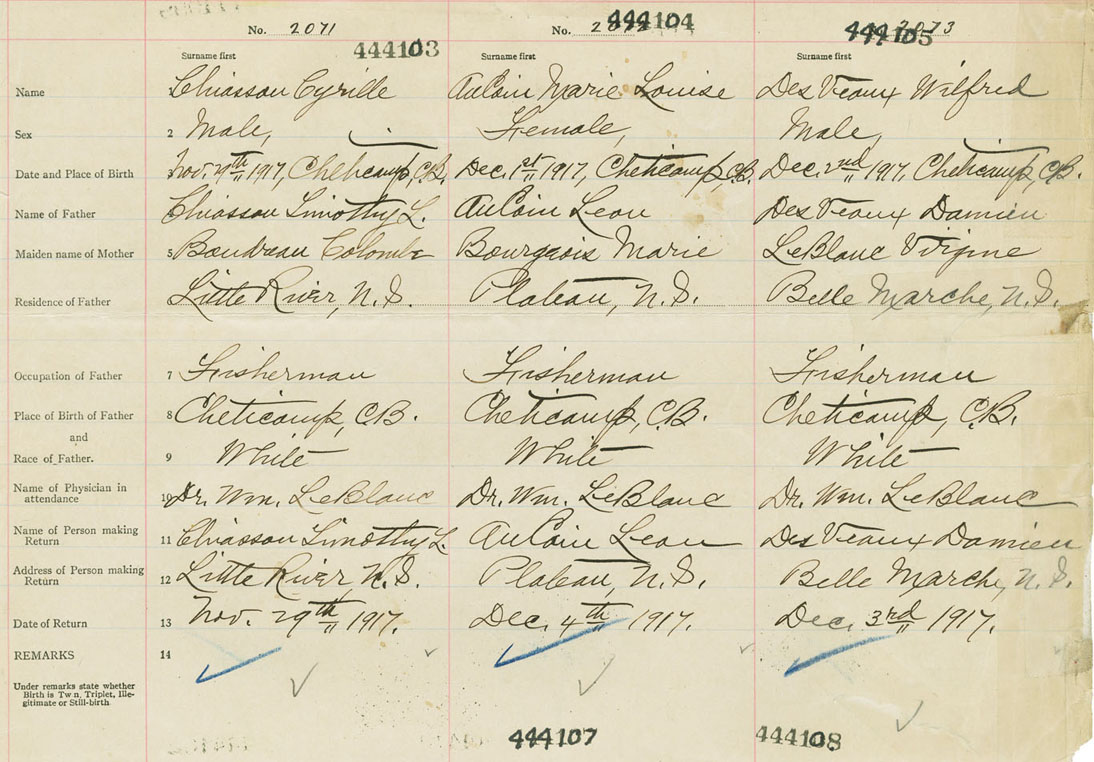 No. 2071 No. 2072 2073
444103 444104 444105
Surname first Surname first Surname first
Name Chiasson Cyrille AuCoin Marie Louise Des Veaux Wilfred
Sex 2 Male, Female, Male,
Date and Place of Birth Nov. 29th 1917, Cheticamp, C.B. Dec. 1st 1917, Cheticamp, C.B. Dec. 2nd 1917, Cheticamp, C.B.
Name of Father Chiasson Timothy L. AuCoin Leon Des Veaux Damien
Maiden name of Mother 5 Boudreau Colombe Bourgeois Marie LeBlanc Virgine
Residence of Father Little River, N.S. Plateau, N.S. Belle Marche, N.S.
Occupation of Father 7 Fisherman Fisherman Fisherman
Place of Birth of Father 8 Cheticamp, C.B. Cheticamp, C.B. Cheticamp, C.B.
and
Race of Father. 9 White White White
Name of Physician in
attendance 10 Dr. Wm. LeBlanc Dr. Wm. LeBlanc Dr. Wm. LeBlanc
Name of Person making
Return 11 Chiasson Timothy L. AuCoin Leon Des Veaux Damien
Address of Person making
Return 12 Little River N.S. Plateau, N.S. Belle Marche, N.S.
Date of Return 13 Nov. 29th 1917. Dec. 4th 1917. Dec. 3rd 1917.
REMARKS 14
Under remarks state whether
Birth is Tw n, Triplet, Ille-
gitimate or Still-birth
444107 444108